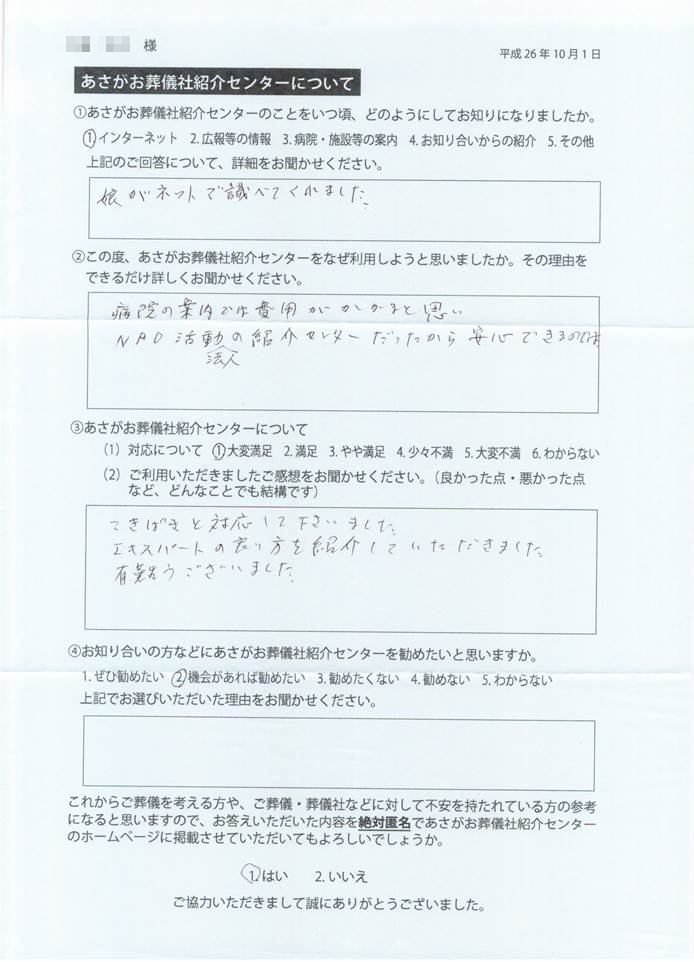 様
平成26年10月1日
あさがお葬儀社紹介センターについて
①あさがお葬儀社紹介センターのことをいつ頃、どのようにしてお知りになりましたか。
1.インターネット 2.広報等の情報 3.病院・施設等の案内 4.お知り合いからの紹介 5.その他
上記のご回答について、詳細をお聞かせください。
娘がネットで調べてくれました。
②この度、あさがお葬儀社紹介センターをなぜ利用しようと思いましたか。その理由を
できるだけ詳しくお聞かせください。
病院の案内では費用がかかると思い
NPO活動の紹介センターだったから安心できるのでは
法人
③あさがお葬儀社紹介センターについて
（1）対応について 1.大変満足 2.満足 3.やや満足 4.少々不満 5.大変不満 6.わからない
（2）ご利用いただきましたご感想をお聞かせください。（良かった点・悪かった点
など、どんなことでも結構です）
てきぱきと対応して下さいました。
エキスパートの良い方を紹介していただきました。
有難うございました。
④お知り合いの方などにあさがお葬儀社紹介センターを勧めたいと思いますか。
1.ぜひ勧めたい 2.機会があれば勧めたい 3.勧めたくない 4.勧めない 5.わからない
上記でお選びいただいた理由をお聞かせください。
これからご葬儀を考える方や、ご葬儀・葬儀社などに対して不安を持たれている方の参考
になると思いますので、お答えいただいた内容を絶対匿名であさがお葬儀社紹介センター
のホームページに掲載させていただいてもよろしいでしょうか。
1.はい 2.いいえ
ご協力いただきまして誠にありがとうございました。